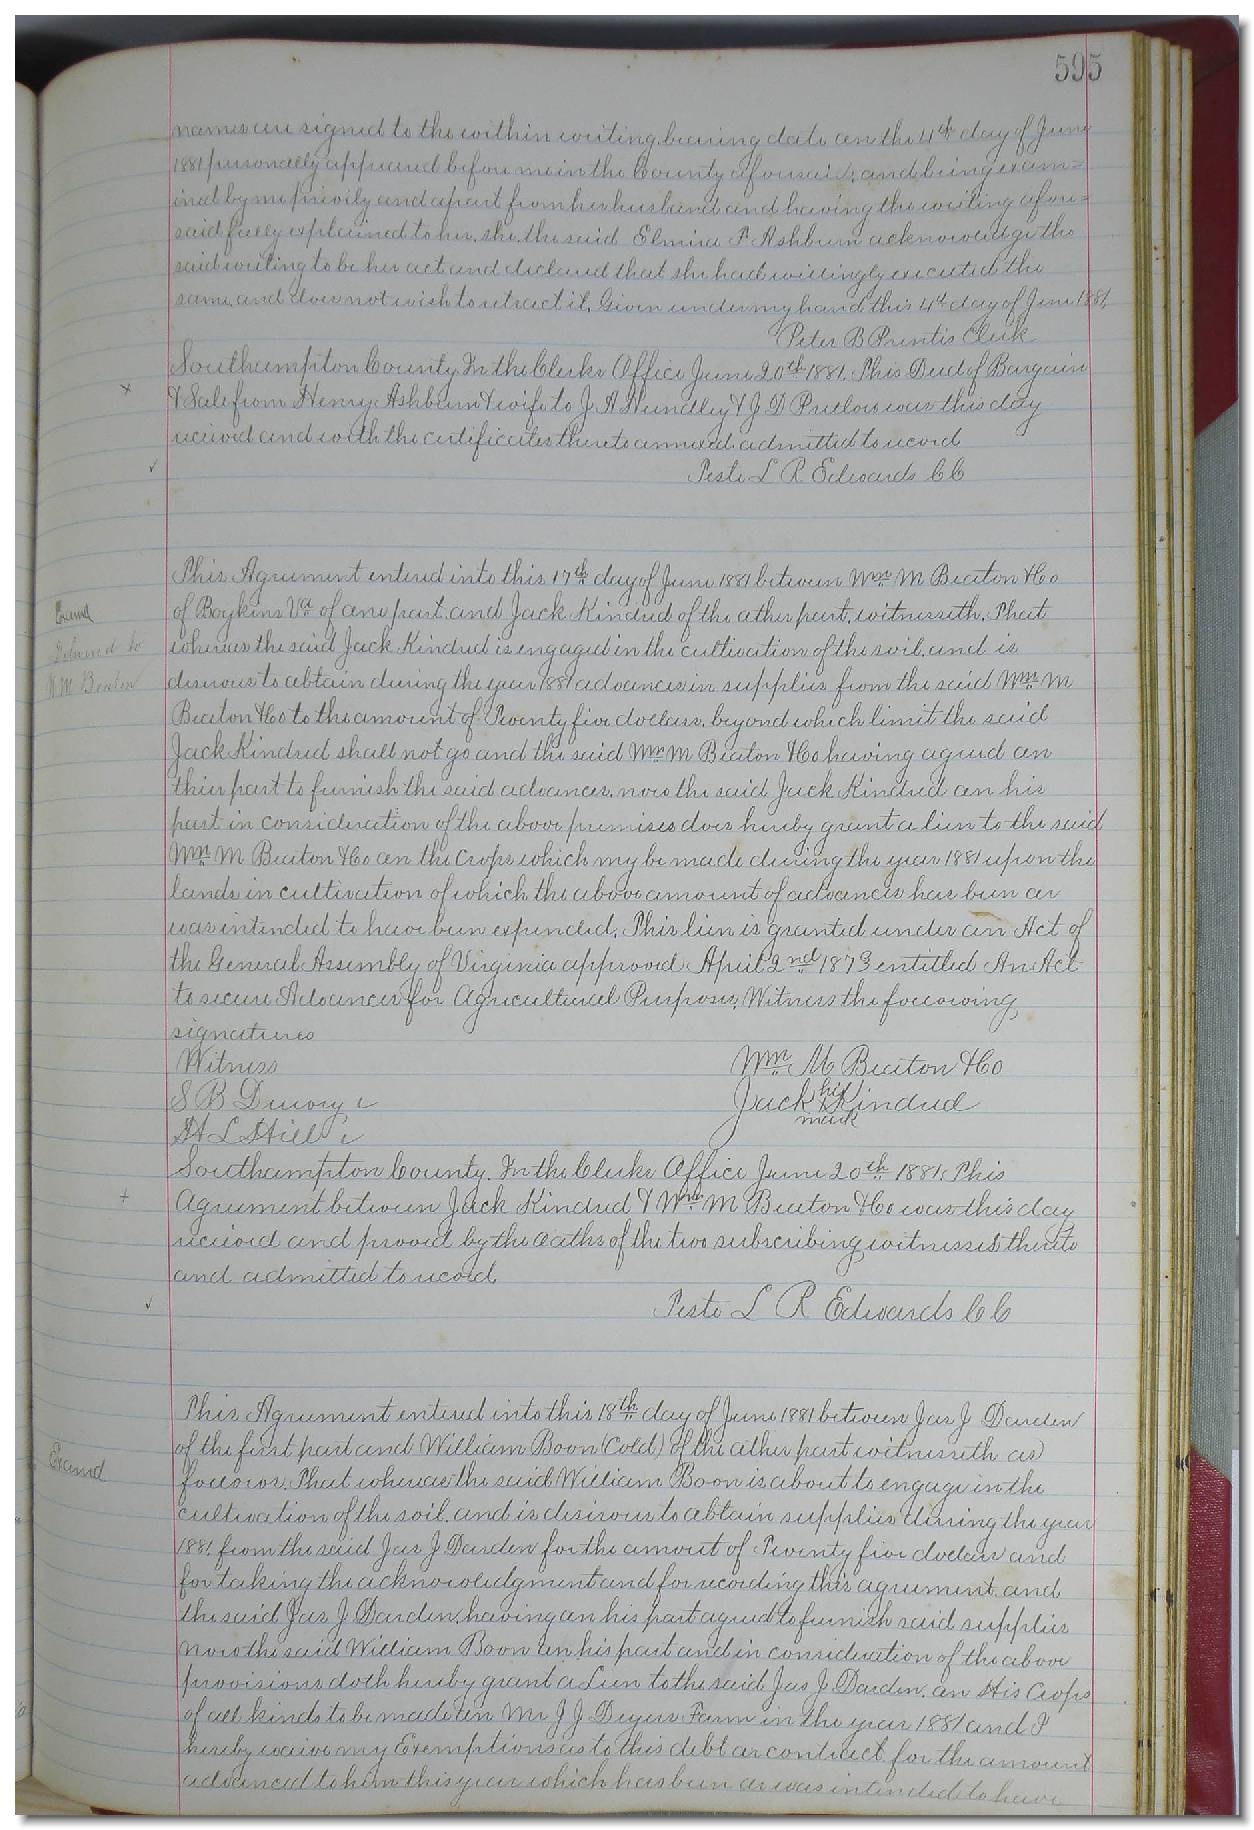 595
names are signed to the within writing bearing date on the 4th day of June
1881 personally appeared before me in the County aforesaid, and being exam=
ined by me privily and apart from her husband and having the writing afore=
said fully explained to her, she the said Elmira F Ashburn acknowledge the
said writing to be her act and declared that she had willingly executed the
same, and does not wish to retract it. Given under my hand this 4th day of June 1881.
Peter B Prentis Clerk
Southampton County In the Clerks Office June 20th 1881. This Deed of Bargain
& Sale from Henry Ashburn & wife to J A Hundley & J D Pretlow was this day
received and with the certificates thereto annexed admitted to record
Teste L R Edwards CC
This Agreement entered into this 17th day of June 1881 between Wm M Beaton & Co
of Boykins Va of one part, and Jack Kindred of the other part, witnesseth, That
whereas the said Jack Kindred is engaged in the cultivation of the soil, and is
desirous to obtain during the year 1881 advances in supplies from the said Wm M
Beaton & Co to the amount of Twenty five dollars, beyond which limit the said
Jack Kindred shall not go and the said Wm M Beaton & Co having agreed on
their part to furnish the said advances, now the said Jack Kindred on his
part in consideration of the above premises does hereby grant a lien to the said
Wm M Beaton & Co on the crops which my be made during the year 1881 upon the
lands in cultivation of which the above amount of advances has been or
was intended to have been expended. This lien is granted under an Act of
the General Assembly of Virginia approved April 2nd 1873 entitled An Act
to secure Advances for Agricultural Purposes, Witness the following
signatures
Witness
Wm M Beaton & Co
S B Drewry
Jack his x Kindred
mark
H L Hill
Southampton County. In the Clerks Office June 20th 1881. This
Agreement between Jack Kindred & Wm M Beaton & Co was this day
received and proved by the oaths of the two subscribing witnesses thereto
and admitted to record
Teste L R Edwards CC
Examd
Delivered to
W M Beaton
This Agreement entered into this 18th day of June 1881 between Jas J Darden
of the first part and William Boon (Cold) of the other part witnesseth as
follows. That whereas the said William Boon is about to engage in the
cultivation of the soil, and is desirous to obtain supplies during the year
1881, from the said Jas J Darden for the amount of Twenty five dollars and
for taking the acknowledgment and for recording this agreement, and
the said Jas J Darden, having on his part agreed to furnish said supplies
now the said William Boon on his part and in consideration of the above
provisions doth hereby grant a Lien to the said Jas J Darden, on His Crops
of all kinds to be made on Mr J J Deyers Farm in the year 1881 and I
hereby waive my Exemptions as to this debt or contract for the amount
advanced to him this year which has been or was intended to have
Examd